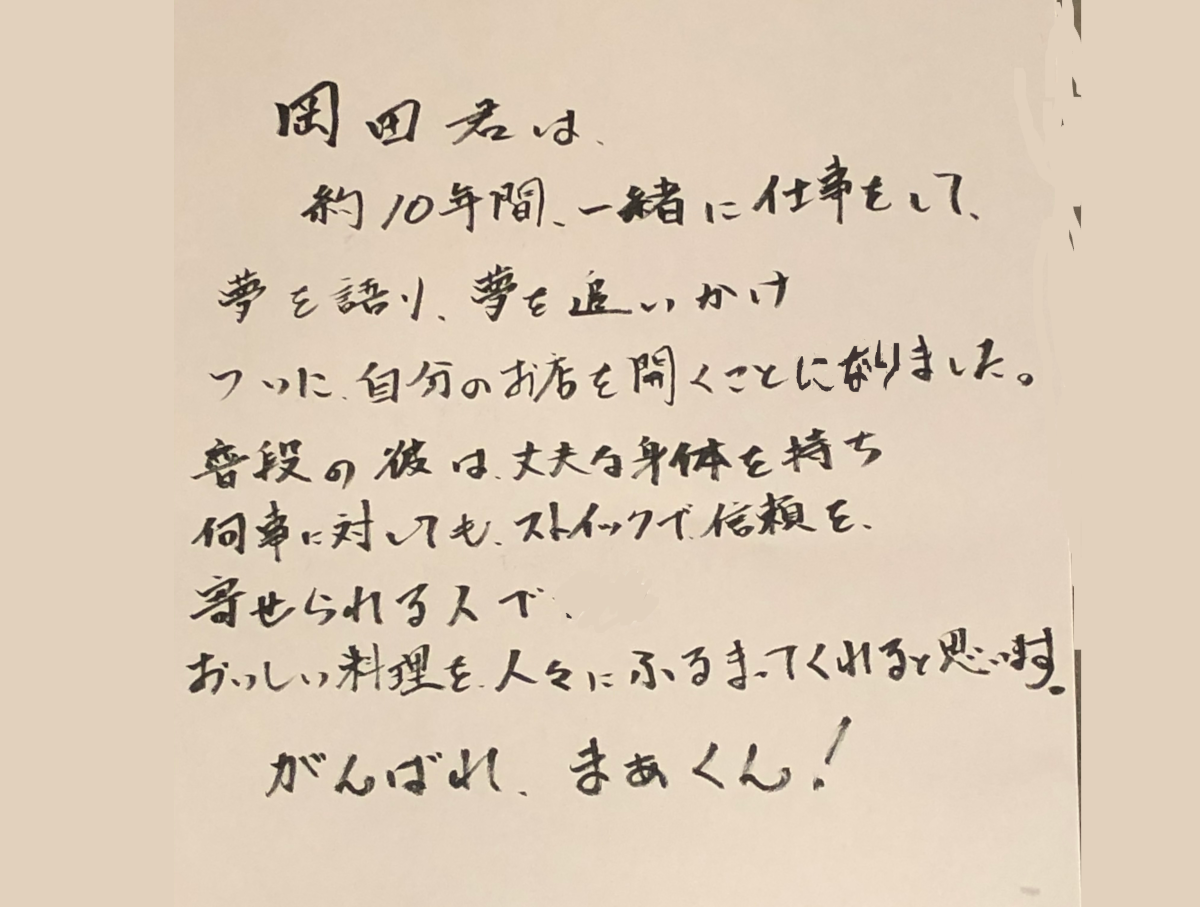 岡田君は、
約10年間、一緒に仕事をして、
夢を語り、夢を追いかけ
ついに、自分のお店を開くことになりました。
普段の彼は、丈夫な身体を持ち
何事に対しても、ストイックで、信頼を、
寄せられる人で、
おいしい料理を、人々にふるまってくれると思います。
がんばれ、まぁくん!